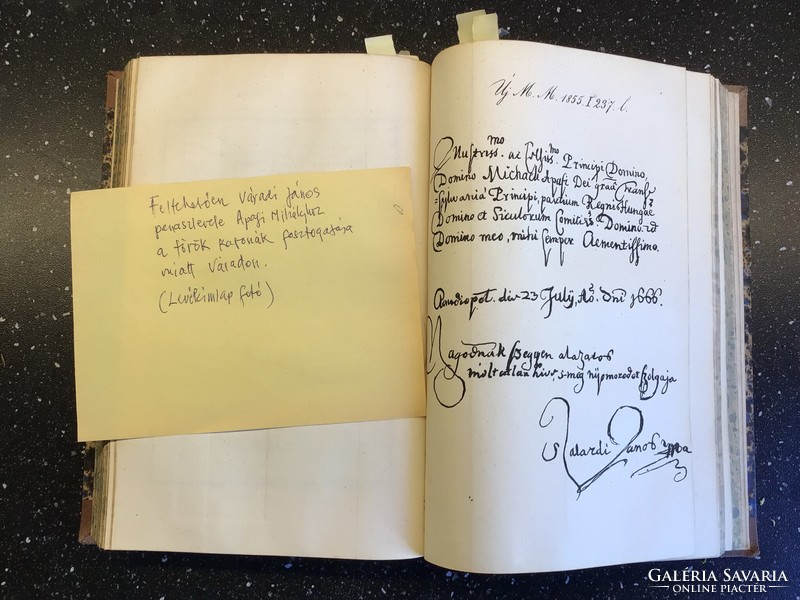 Feltehetően Váradi János
panaszlevele Apafi Mihályhoz
a török katonák fosztogatája
miatt Váradon.
(Levélcímlap fotó)
Új M. M. 1855. I 237. l.
Illustriss.mo ac Celsiss.mo Principi Domino,
Domino Michaeli Apafi Dei gratia Trans=
=sylvaniæ Principi, partium Regni Hungae
Domino et Siculorum Comiti &. Domino
Domino meo, mihi semper Clementissimo.
Claudiopol. die 23 July, Ao. dni 1666.
Nagodnak szegyen alazatos
melt hive, s meg szolgaja
Janos
GALÉRIA SAVARIA
ONLINE PIACTÉR